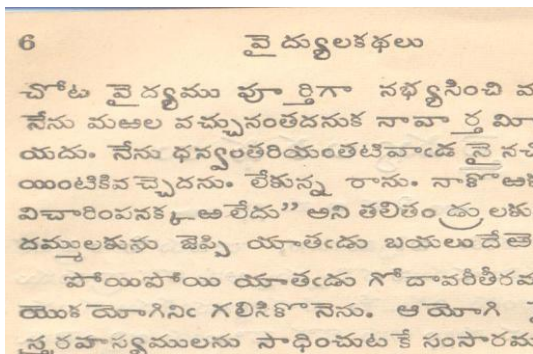 6 వైద్యులకథలు
చోట వైద్యము పూర్తిగా నభ్యసించి
నేను మఱల వచ్చునంతదనుక నావార్త మి
యదు. నేను ధన్వంతరియంతటివాఁడ నై నచ
యింటికివచ్చెదను. లేకున్న రాను. నాకొఱక
విచారింపనక్కఱలేదు” అని తలితండ్రులకు
దమ్ములకును జెప్పి యాతఁడు బయలుదేఱె
పోయిపోయి యాతఁడు గోదావరీతీరమ
యొక యోగినిఁ గలిసికొనెను. ఆ యోగి
స్త్రరహస్యములను సాధించుటకే సంసారమ